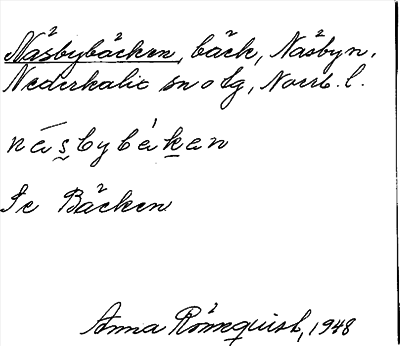 Näsbybäcken, bäck, Näsbyn,
Nederkalix sn o tg, Norrb. l.
näsbybäkən
Se Bäcken
Anna Rönnquist, 1948